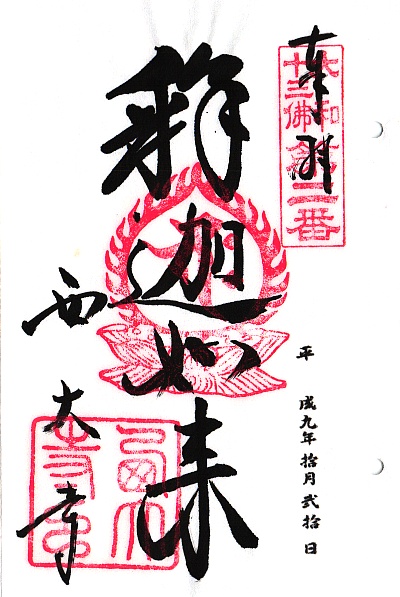 奉拝
大和
十三佛
第二番
釋迦如来
西大寺
平成九年拾月弐拾日